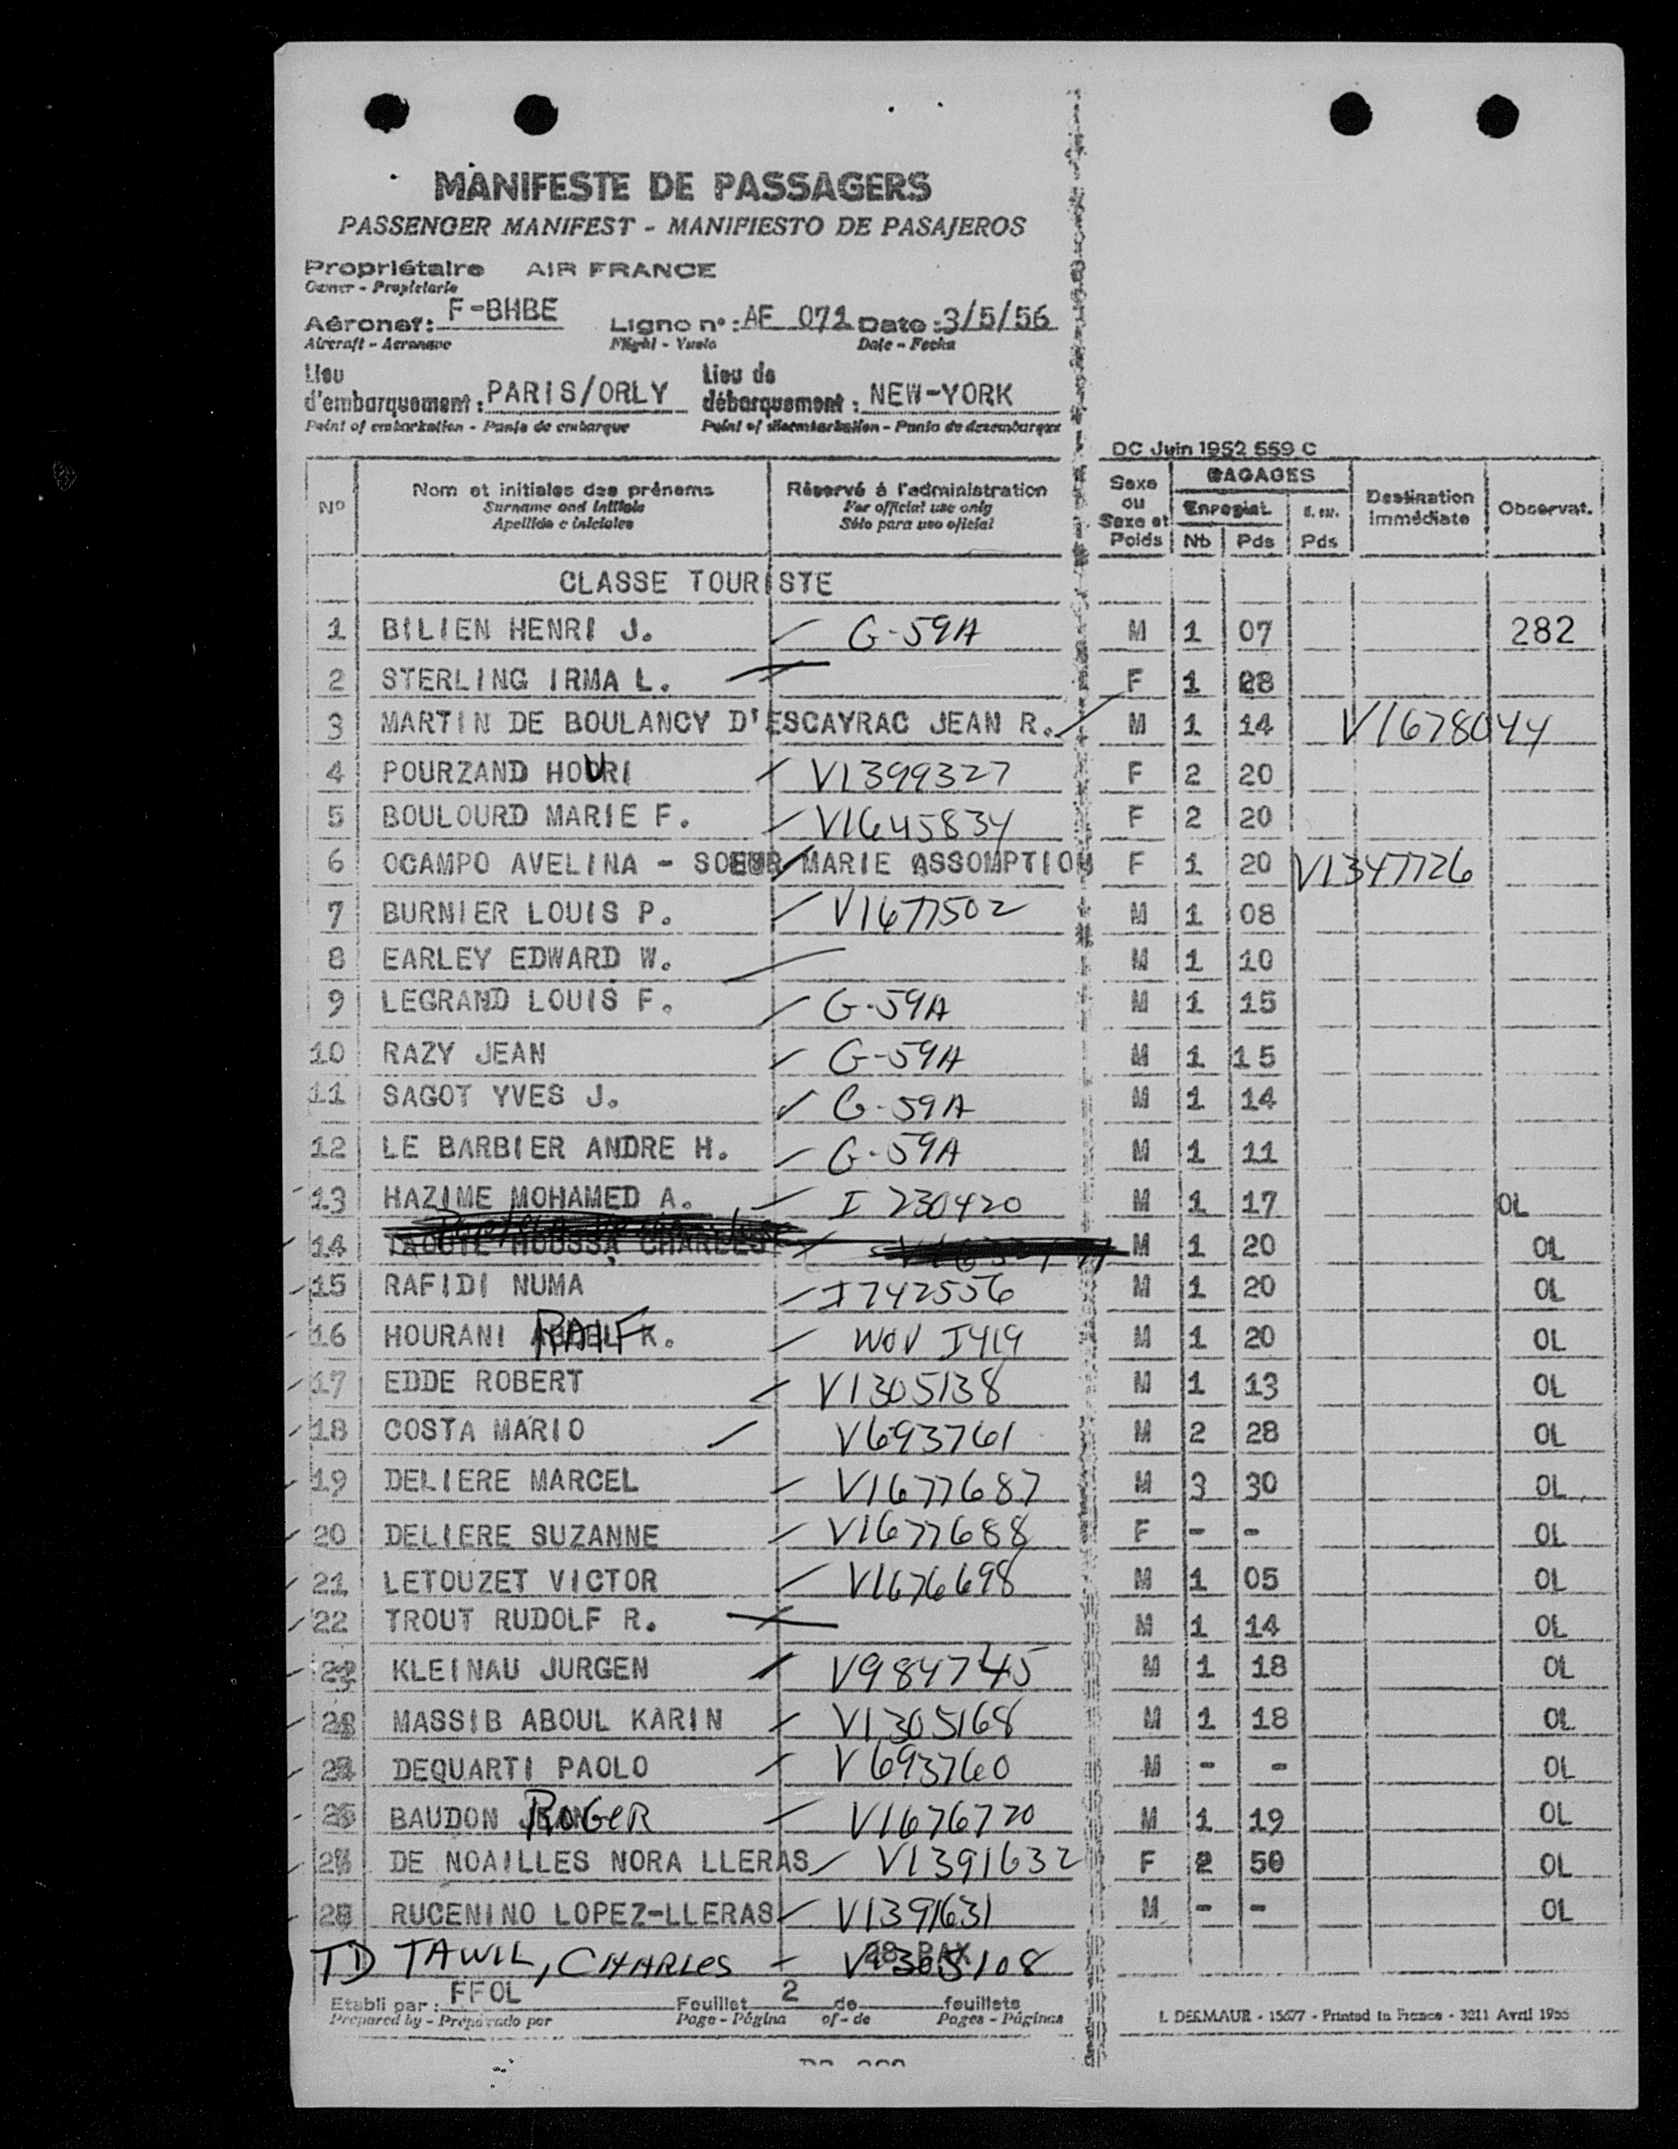 MANIFESTE DE PASSAGERS
PASSENGER MANIFEST - MANIFIESTO DE PASAJEROS
Propriétaire AIR FRANCE
Owner - Propietario
Aéronef: F-BHBE Ligne n°: AF 071 Date: 3/5/56
Aircraft - Aeronave Flight - Vuelo Date - Fecha
Lieu d'embarquement: PARIS/ORLY Lieu de débarquement: NEW-YORK
Point of embarkation - Punto de embarque Point of disembarkation - Punto de desembarque
DC Juin 1952 559 C
N° Nom et initiales des prénoms Réservé à l'administration Sexe ou Sexe et Poids BAGAGES Enregist. Nb Pds Pds Destination immédiate Observat.
Surname and initials For official use only
Apellido e iniciales Sólo para uso oficial
CLASSE TOURISTE
1 BILIEN HENRI J. G-59A M 1 07 282
2 STERLING IRMA L. F 1 28
3 MARTIN DE BOULANCY D'ESCAYRAC JEAN R. M 1 14 V1678044
4 POURZAND HOURI V1399327 F 2 20
5 BOULOURD MARIE F. V1645834 F 2 20
6 OCAMPO AVELINA - SOEUR MARIE ASSOMPTION F 1 20 V1347726
7 BURNIER LOUIS P. V1677502 M 1 08
8 EARLEY EDWARD W. M 1 10
9 LEGRAND LOUIS F. G-59A M 1 15
10 RAZY JEAN G-59A M 1 15
11 SAGOT YVES J. G-59A M 1 14
12 LE BARBIER ANDRE H. G-59A M 1 11
13 HAZIME MOHAMED A. I 230420 M 1 17 OL
14 MOUSSA CHARLES M 1 20 OL
15 RAFIDI NUMA I742556 M 1 20 OL
16 HOURANI RAIF K. WOV I419 M 1 20 OL
17 EDDE ROBERT V1305138 M 1 13 OL
18 COSTA MARIO V693761 M 2 28 OL
19 DELIERE MARCEL V1677687 M 3 30 OL
20 DELIERE SUZANNE V1677688 F - - OL
21 LETOUZET VICTOR V1676698 M 1 05 OL
22 TROUT RUDOLF R. M 1 14 OL
KLEINAU JURGEN V984745 M 1 18 OL
MASSIB ABOUL KARIN V1305168 M 1 18 OL
DEQUARTI PAOLO V693760 M - - OL
BAUDON ROGER V1676720 M 1 19 OL
DE NOAILLES NORA LLERAS V1391632 F 2 50 OL
RUCENINO LOPEZ-LLERAS V1391631 M - - OL
28 PAX
TD TAWIL, CHARLES V1305108
Etabli par: FFOL Feuillet 2 de feuillets
Prepared by - Preparado por Page - Página of - de Pages - Páginas
I. DERMAUR - 15677 - Printed in France - 3211 Avril 1955